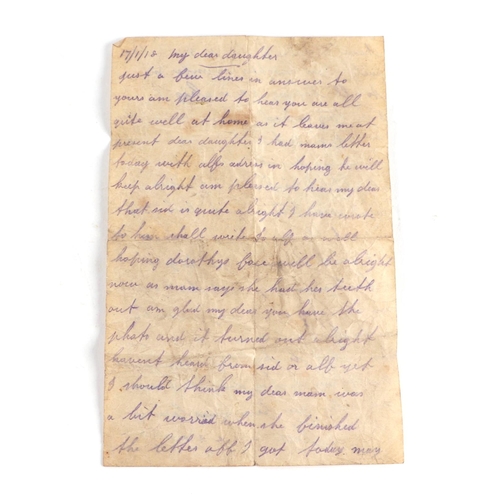 17/1/18 My dear daughter
just a few lines in answer to
yours am pleased to hear you are all
quite well at home as it leaves me at
present dear daughter I had mams letter
today with alfs adress in hoping he will
keep alright am pleased to hear my dear
that sid is quite alright I have wrote
to him shall write to alf as well
hoping dorothys face will be alright
now as mam says she had her teeth
out am glad my dear you have the
photo and it turned out alright
havent heard from sid or alf yet
I should think my dear mam was
a bit worried when she finished
the letter off I got today may